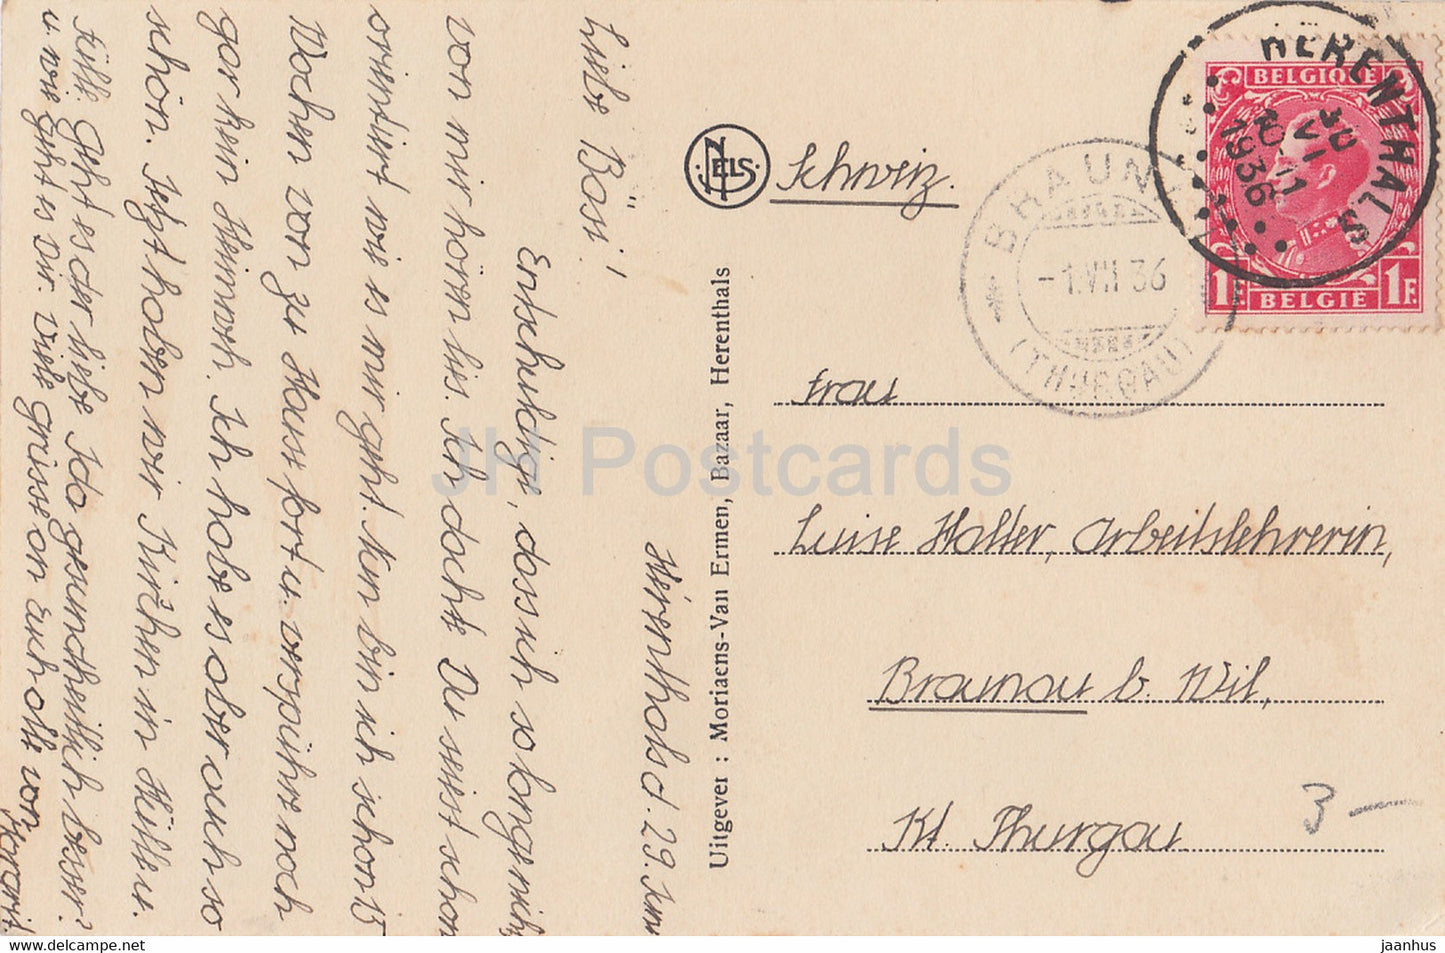 Herenthals d. 29. Juni
Liebe Bösi!
Entschuldige, dass ich so lange nichts
von mir hören liess. Ich dachte Du seiest schon
orientiert wie es mir geht. Nun bin ich schon 15
Wochen von zu Hause fort u. verspüre noch
gar kein Heimweh. Ich habe es aber auch so
schön. Jetzt haben wir Kirchen in Hülle u.
Fülle. Geht es der liebe Ida gesundheitlich besser?
u. wie geht es Dir. Viele Grüsse an Euch alle von
Uitgever : Moriaens-Van Ermen, Bazaar, Herenthals
NELS
Schweiz.
Frau
Luise Halter, Arbeitslehrerin,
Braunau b. Wil,
Kt. Thurgau
3 —
BELGIQUE
1F 1F
BELGIE
HERENTHALS
30
VI
1936
BRAUNAU
-1.VII 36
(THURGAU)
JH Postcards
www.delcampe.net
jaanhus